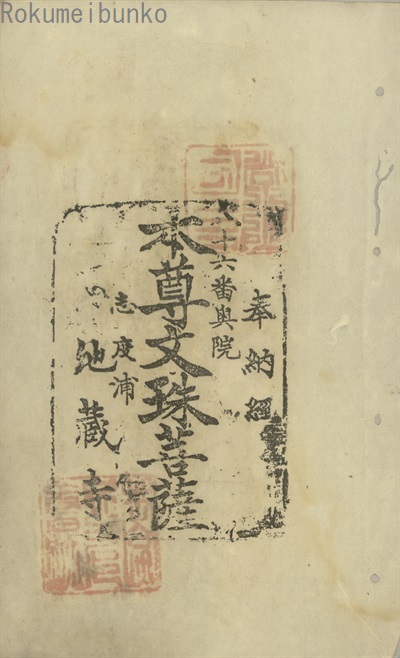 Rokumeibunko
奉納經
八十六番奥院
本尊文珠菩薩
志度浦
地藏寺